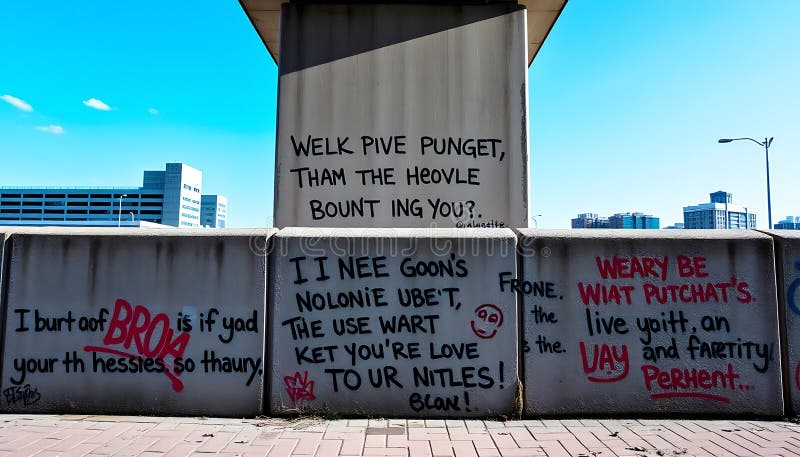 WELK PIVE PUNGET,
THAM THE HEOVLE
BOUNT ING YOU?.
I burt aof BROA is if yod
your th hessies, so thaury.
I I NEE GOON'S
NOLONIE UBE'T,
THE USE WART
KET YOU'RE LOVE
TO UR NITLES!
BLAN!
FRONE.
the
s the.
WEARY BE
WIAT PUTCHAT'S.
live yoitt, an
UAY and FARETITY
PERHENT...